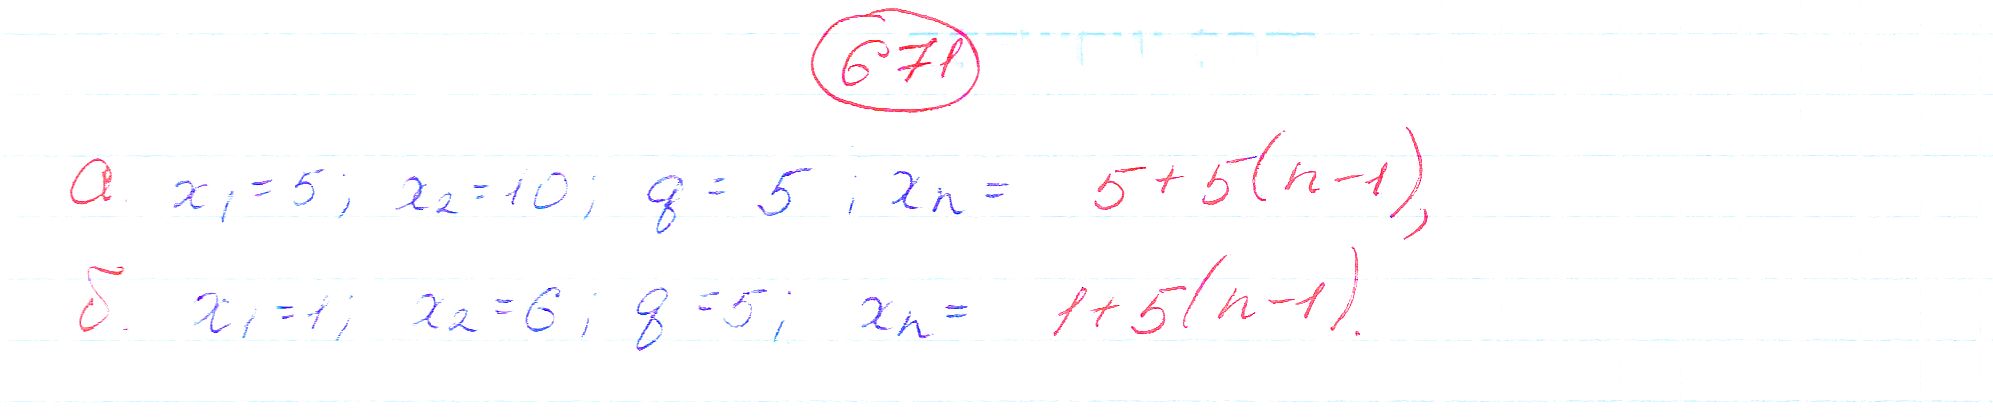 671
а. x₁=5; x₂=10; q=5; xₙ= 5+5(n-1),
б. x₁=1; x₂=6; q=5; xₙ= 1+5(n-1).